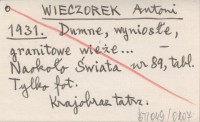 WIECZOREK Antoni
1931. Dumne, wyniosłe,
granitowe wieże...—
Naokoło Świata nr 89, tabl.
Tylko fot.
Krajobraz tatrz.